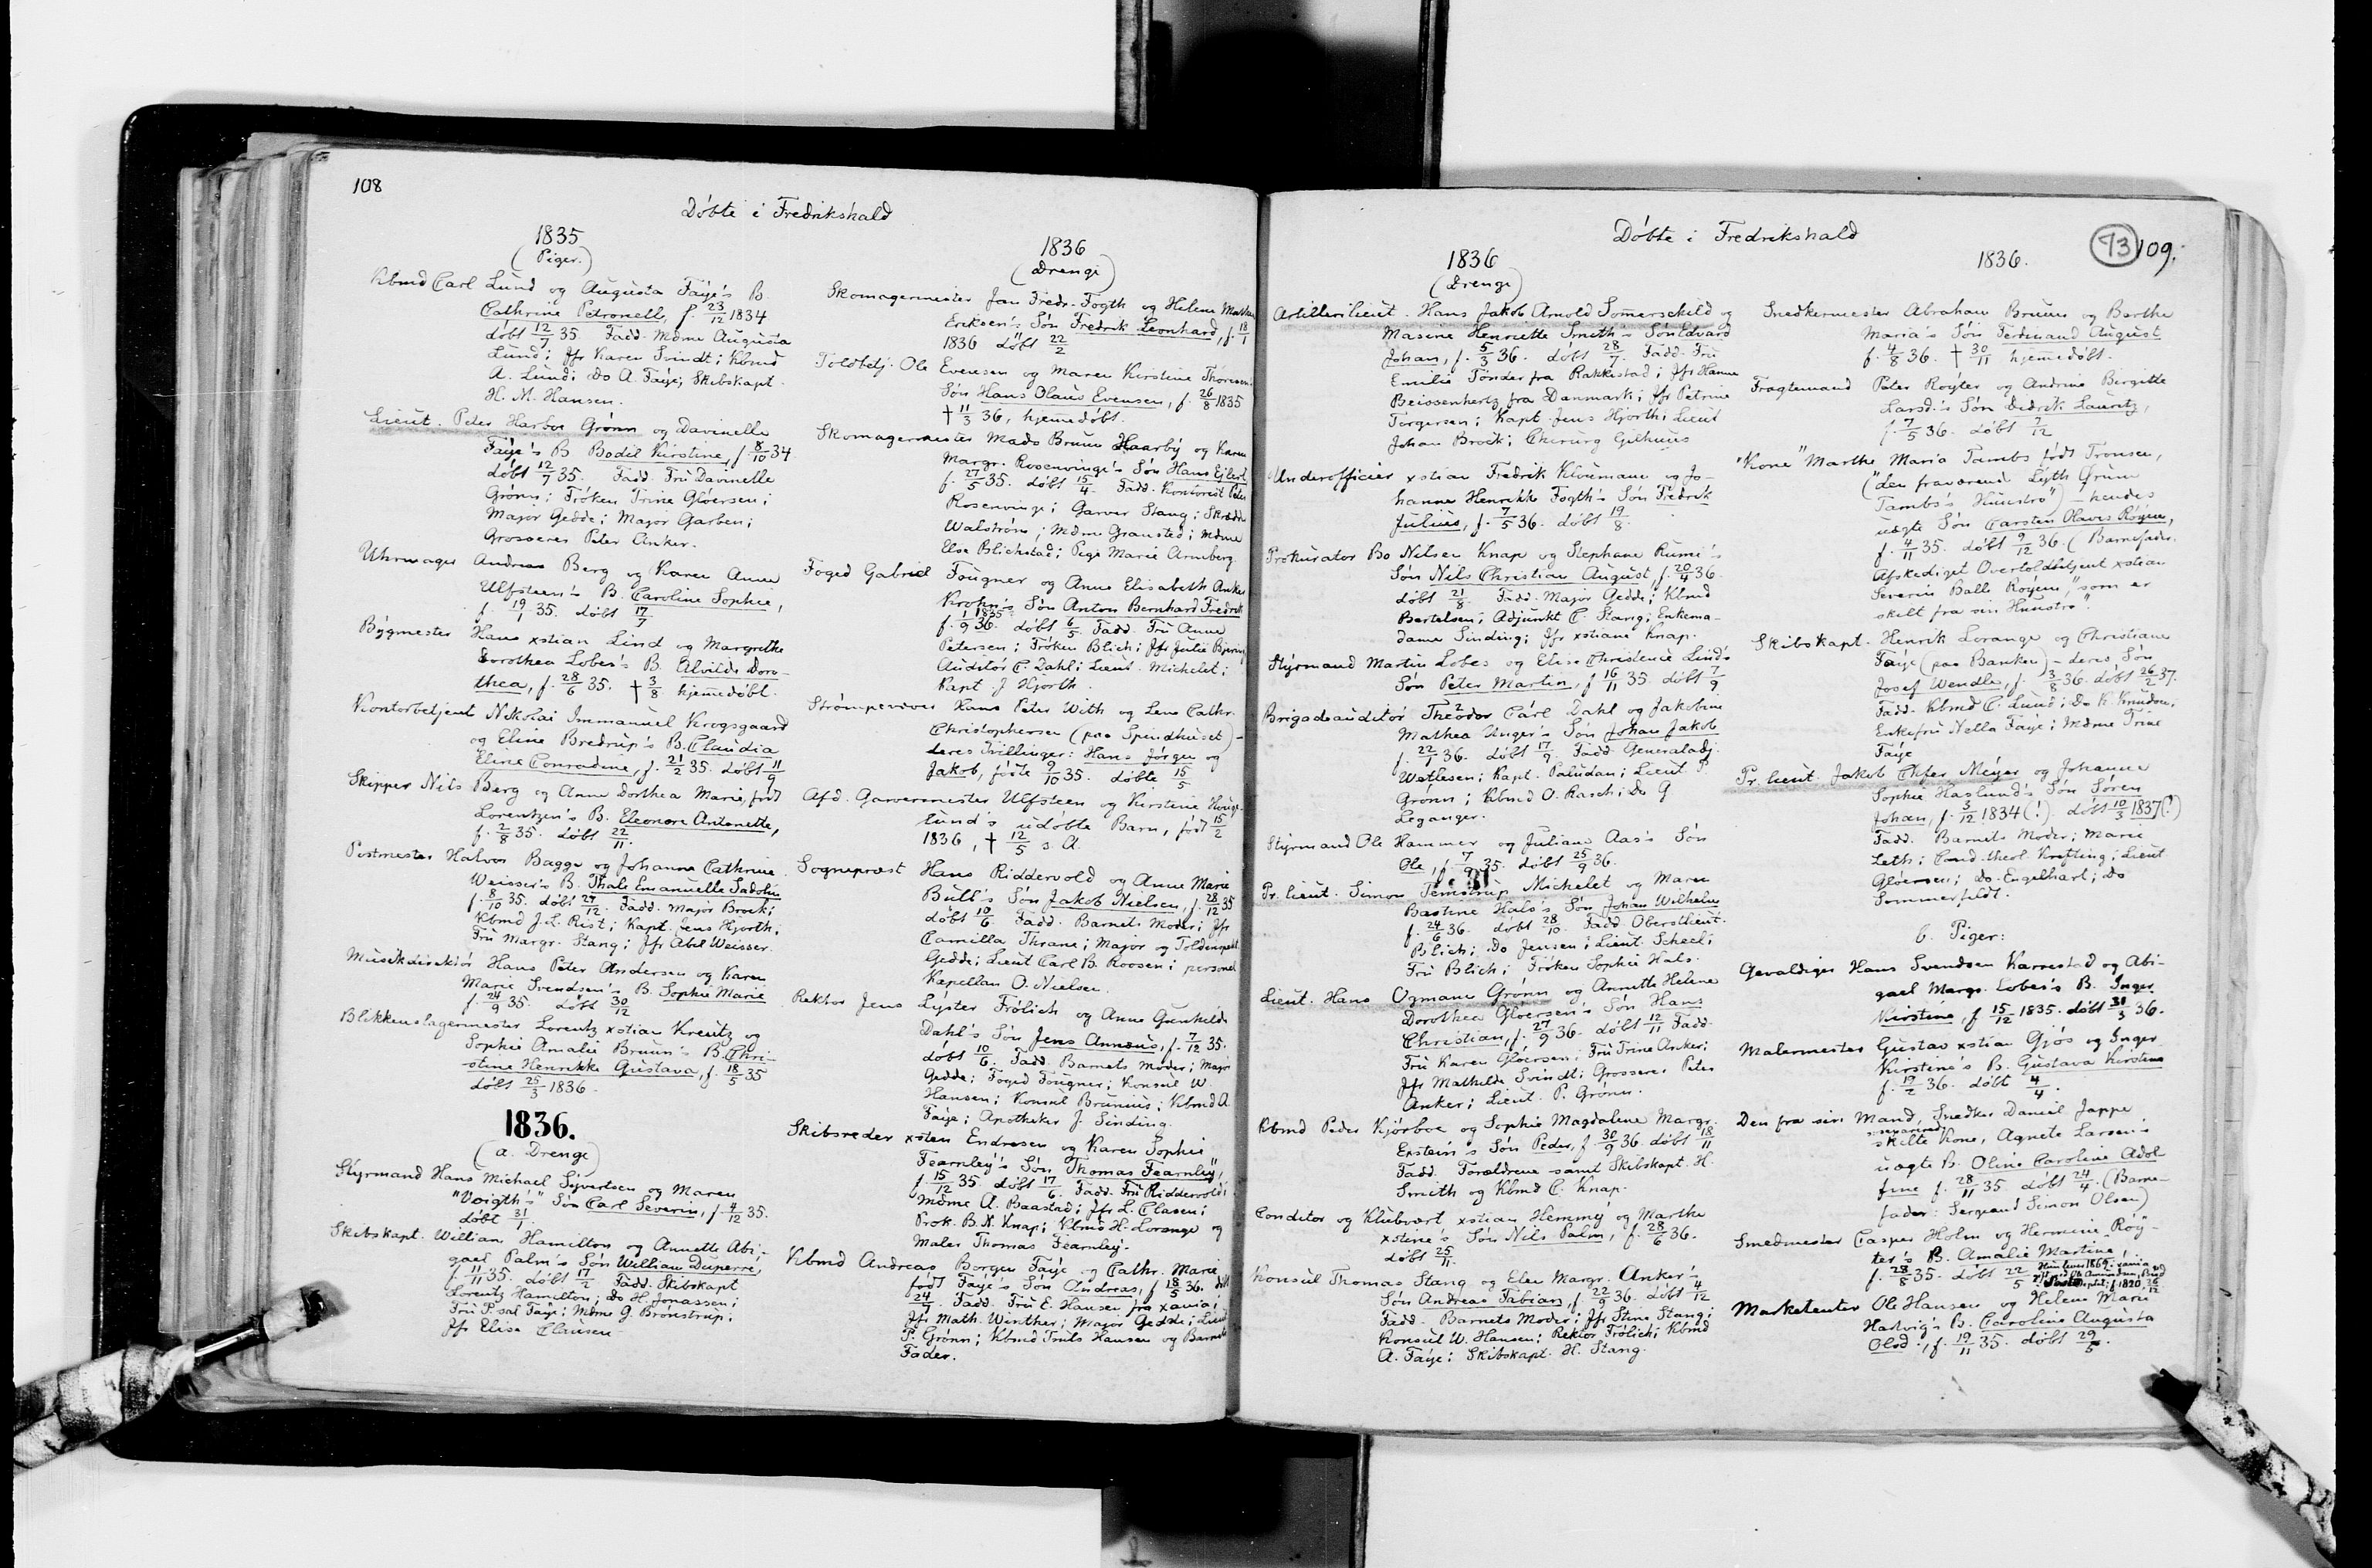 108
Döbte i Fredrikshald
1835
(Piger.)
Kbmd Carl Lund og Augusta Faÿe's B.
Cathrine Petronell, f. 23/12 1834
döbt 12/7 35. Fadd. Mdme Augusta
Lund; Jfr Karen Svindt; Kbmd
A. Lund; Do A. Faÿe; Skibskapt.
H. M. Hansen.
Lieut. Peter Harboe Grönn og Davinelle
Faÿe's B. Bodil Kirstine, f. 8/10 34
döbt 12/7 35. Fadd. Frü Davinelle
Grönn; Fröken Trine Glöersen;
Major Gedde; Major Garben;
Grosserer Peter Anker.
Uhrmager Andreas Berg og Karen Anne
Ulfsteen's B. Caroline Sophie,
f. 19/1 35. döbt 17/7
Bygmester Hans xstian Lind og Margrethe
Dorothea Lobes's B. Elvilde Doro-
thea, f. 28/6 35. † 3/8 hjemmedöbt.
Kontorbetjent Nikolai Immanuel Krogsgaard
og Eline Bredrup's B. Claudia
Eline Conradine, f. 21/2 35. döbt 11/9
Skipper Nils Berg og Anne Dorthea Marie, född
Lorentzen's B. Eleonore Antonette,
f. 2/8 35. döbt 22/11.
Postmester Halvor Bagge og Johanne Cathrine
Weisser's B. Thale Emanuelle Sadolin
f. 8/10 35. döbt 27/12. Fadd. Major Brock;
Kbmd J. L. Rist; Kapt. Jens Hjorth;
Frü Margr. Stang; Jfr Abel Weisser.
Musikdirektör Hans Peter Andersen og Karen
Marie Svendsen's B. Sophie Marie
f. 24/9 35. döbt 30/12
Blikkenslagermester Lorentz xstian Kreutz og
Sophie Amalie Bruun's B. Chri-
stine Henrikke Gustava, f. 18/5 35
döbt 25/3 1836.
1836.
(a. Drenge)
Styrmand Hans Michael Syvertsen og Maren
"Voigth's" Sön Carl Severin, f. 4/12 35.
döbt 31/1.
Skibskapt. William Hamilton og Annette Abi-
gael Palm's Sön William Duperré,
f. 1/11 35. döbt 17/2 Fadd. Skibskapt
Lorentz Hamilton; Do H. Jonassen;
Frü P. sal Faÿe; Mdme G. Brönstrup;
Jfr Elise Clausen
1836
(Drenge)
Skomagermester Jan Fredr. Fogth og Helene Mathea
Eriksen's Sön Fredrik Leonhard, f. 18/1
1836 döbt 22/2
Toldbetj. Ole Evensen og Maren Kirstine Thoresen's
Sön Hans Olaus Evensen, f. 26/8 1835
† 11/3 36, hjemmedöbt.
Skomagermester Mads Bruun Haarbÿ og Karen
Margr. Rosenvinge's Sön Hans Ejlert
f. 27/5 35. döbt 15/4. Fadd. Kontorist Peter
Rosenvinge; Garver Stang; Skrædder
Walström; Mdme Gransted; Mdme
Else Blichstad; Pige Marie Armberg.
Foged Gabriel Fougner og Anne Elisabeth Anker
Krohn's Sön Anton Bernhard Fredrik
f. 1/9 1835 36. döbt 6/5. Fadd. Frü Anne
Petersen; Fröken Blich; Jfr Julie Bjering
Auditör C. Dahl; Lieut. Michelet;
Kapt. J Hjorth.
Strömpevæver Hans Peter With og Lene Cathr.
Christophersen (paa Spindhuset) -
deres Tvillinger: Hans Jörgen og
Jakob, födte 9/10 35. döbte 15/5
Afd. Garvermester Ulfsteen og Kirstine
lund's udöbte Barn, född 15/2
1836, † 12/5 s. A.
Sogneprest Hans Riddervold og Anne Marie
Bull's Sön Jakob Nielsen, f. 28/12 35
döbt 10/6 Fadd. Barnets Moder; Jfr
Camilla Thrane; Major og Toldinspekt.
Gedde; Lieut Carl B. Roosen; personel
Kapellan O. Nielsen.
Rektor Jens Lÿster Frölich og Anne Gunhilde
Dahl's Sön Jens Annæus, f. 7/12 35.
döbt 10/6. Fadd. Barnets Moder; Major
Gedde; Foged Fougner; Konsul W.
Hansen; Konsul Brunius; Kbmd A.
Faÿe; Apotheker J. Sinding.
Skibsreder xsten Endresen og Karen Sophie
Fearnleÿ's Sön Thomas Fearnleÿ,
f. 15/12 35. döbt 17/6. Fadd. Frü Riddervold;
Mdme A. Baastad; Jfr L. Clasen;
Prok. B. N. Knap; Kbmd H. Lorange og
Maler Thomas Fearnleÿ.
Kbmd Andreas Borgen Faÿe og Cathr. Marie
född Faÿe's Sön Andreas, f. 18/5 36. döbt
24/7. Fadd. Frü E. Hansen fra xania;
Jfr Math. Winther; Major Gedde; Lieut
P. Grönn; Kbmd Truls Hansen og Barnets
Fader.
Döbte i Fredrikshald
73 109.
1836
(Drenge)
Artillerilieut. Hans Jakob Arnold Sommerschild og
Masine Henriette Smith's Sön Edvard
Johan, f. 5/3 36. döbt 28/7. Fadd. Frü
Emilie Tönder fra Rakkestad; Jfr Hanne
Beissenhertz fra Danmark; Jfr Petrine
Torgersen; Kapt. Jens Hjorth; Lieut
Johan Brock; Chirurg Guthuus
Underofficier xstian Fredrik Kloumann og Jo-
hanne Henrikke Fogth's Sön Fredrik
Julius, f. 7/5 36. döbt 19/8.
Prokurator Bo Nilsen Knap og Stephane Rumi's
Sön Nils Christian August, f. 20/4 36.
döbt 21/8. Fadd. Major Gedde; Kbmd
Bertelsen; Adjunkt C. Stang; Enkema-
dame Sinding; Jfr xstiane Knap.
Styrmand Martin Lobes og Elise Christence Lind's
Sön Peter Martin, f. 16/11 35. döbt 7/9
Brigadeauditör Theodor Carl Dahl og Jakobine
Mathea Unger's Sön Johan Jakob
f. 22/1 36. döbt 17/9. Fadd. Generaladj.
Watlesen; Kapt. Paludan; Lieut P
Grönn; Kbmd O. Rasch; Do G
Leganger.
Styrmand Ole Hammer og Juliane Aas's Sön
Ole, f. 7/9 35. döbt 25/9 36.
Pr. lieut. Simon Ternstrup Michelet og Maren
Bastine Hals's Sön Johan Wilhelm
f. 24/6 36. döbt 28/10. Fadd. Oberstlieut.
Blich; Do Jensen; Lieut. Scheel;
Frü Blich; Fröken Sophie Hals.
Lieut. Hans Ozmann Grönn og Annette Helene
Dorothea Glöersen's Sön Hans
Christian, f. 27/9 36. döbt 12/11 Fadd.
Frü Karen Glöersen; Frü Trine Anker;
Jfr Mathilde Svindt; Grosserer Peter
Anker; Lieut. P. Grönn.
Kbmd Peder Kjörboe og Sophie Magdalene Margr.
Erstein's Sön Peder, f. 30/9 36. döbt 18/11
Fadd. Forældrene samt Skibskapt. H.
Smith og Kbmd C. Knap.
Conditor og Klubvært xstian Hemmÿ og Marthe
xstine's Sön Nils Palm, f. 28/6 36.
döbt 25/11.
Konsul Thomas Stang og Elen Margr. Anker's
Sön Andreas Fabian, f. 22/9 36. döbt 4/12
Fadd. Barnets Moder; Jfr Stine Stang;
Konsul W. Hansen; Rektor Frölich; Kbmd
A. Faÿe; Skibskapt. H. Stang.
1836.
Snedkermester Abraham Bruun og Berthe
Maria's Sön Ferdinand August
f. 4/8 36. † 30/11 hjemmedöbt.
Fragtemand Peter Röÿter og Andrine Birgitte
Larsd.'s Sön Didrik Lauritz,
f. 7/5 36. döbt 7/12
"Kone" Marthe Maria Tambs född Tronsen,
("den fraværende Lÿth Ørum
Tambs's Hustro") - hendes
uægte Sön Carsten Olaves Röÿem,
f. 4/11 35. döbt 9/12 36. (Barnefader.
Afskediget Overtoldbetjent xstian
Severin Balle Röÿem," som er
skilt fra sin Hustro".
Skibskapt. Henrik Lorange og Christiane
Faÿe (paa Banken) - deres Sön
Josef Wendla, f. 3/8 36. döbt 26/2 37.
Fadd. Kbmd C. Lund; Do K. Knudsen;
Enkefru Nella Faÿe; Mdme Trine
Faÿe
Pr. lieut. Jakob Meÿer og Johanne
Sophie Haslund's Sön Sören
Johan, f. 3/12 1834 (!) döbt 10/3 1837 (!)
Fadd. Barnets Moder; Marie
Leth; Cand. theol. Krefting; Lieut
Glöersen; Do. Engelhart; Do
Sommerfeldt.
b. Piger:
Gevaldiger Hans Svendsen Karrestad og Abi-
gael Margr. Lobes's B. Inger
Kirstine, f. 15/12 1835. döbt 31/3 36.
Malermester Gustav xstian Gjös og Inger
Kirstine's B. Gustava Kirstine
f. 19/2 36. döbt 4/4.
Den fra sin Mand, Snedker Daniel Jappe
separerede
skilte Kone, Agnete Larsen's
uægte B. Oline Caroline Adol
fine f. 28/11 35. döbt 24/4. (Barne-
fader: Sergeant Simon Olsen)
Smedmester Casper Holm og Hermine Röÿ-
ter's B. Amalie Martine
f. 28/8 35. döbt 22/5
Hun lever 1869 i xania
Marketenter Ole Hansen og Helene Marie
Hatvig's B. Caroline Augusta
Olsd., f. 19/11 35. döbt 29/5.